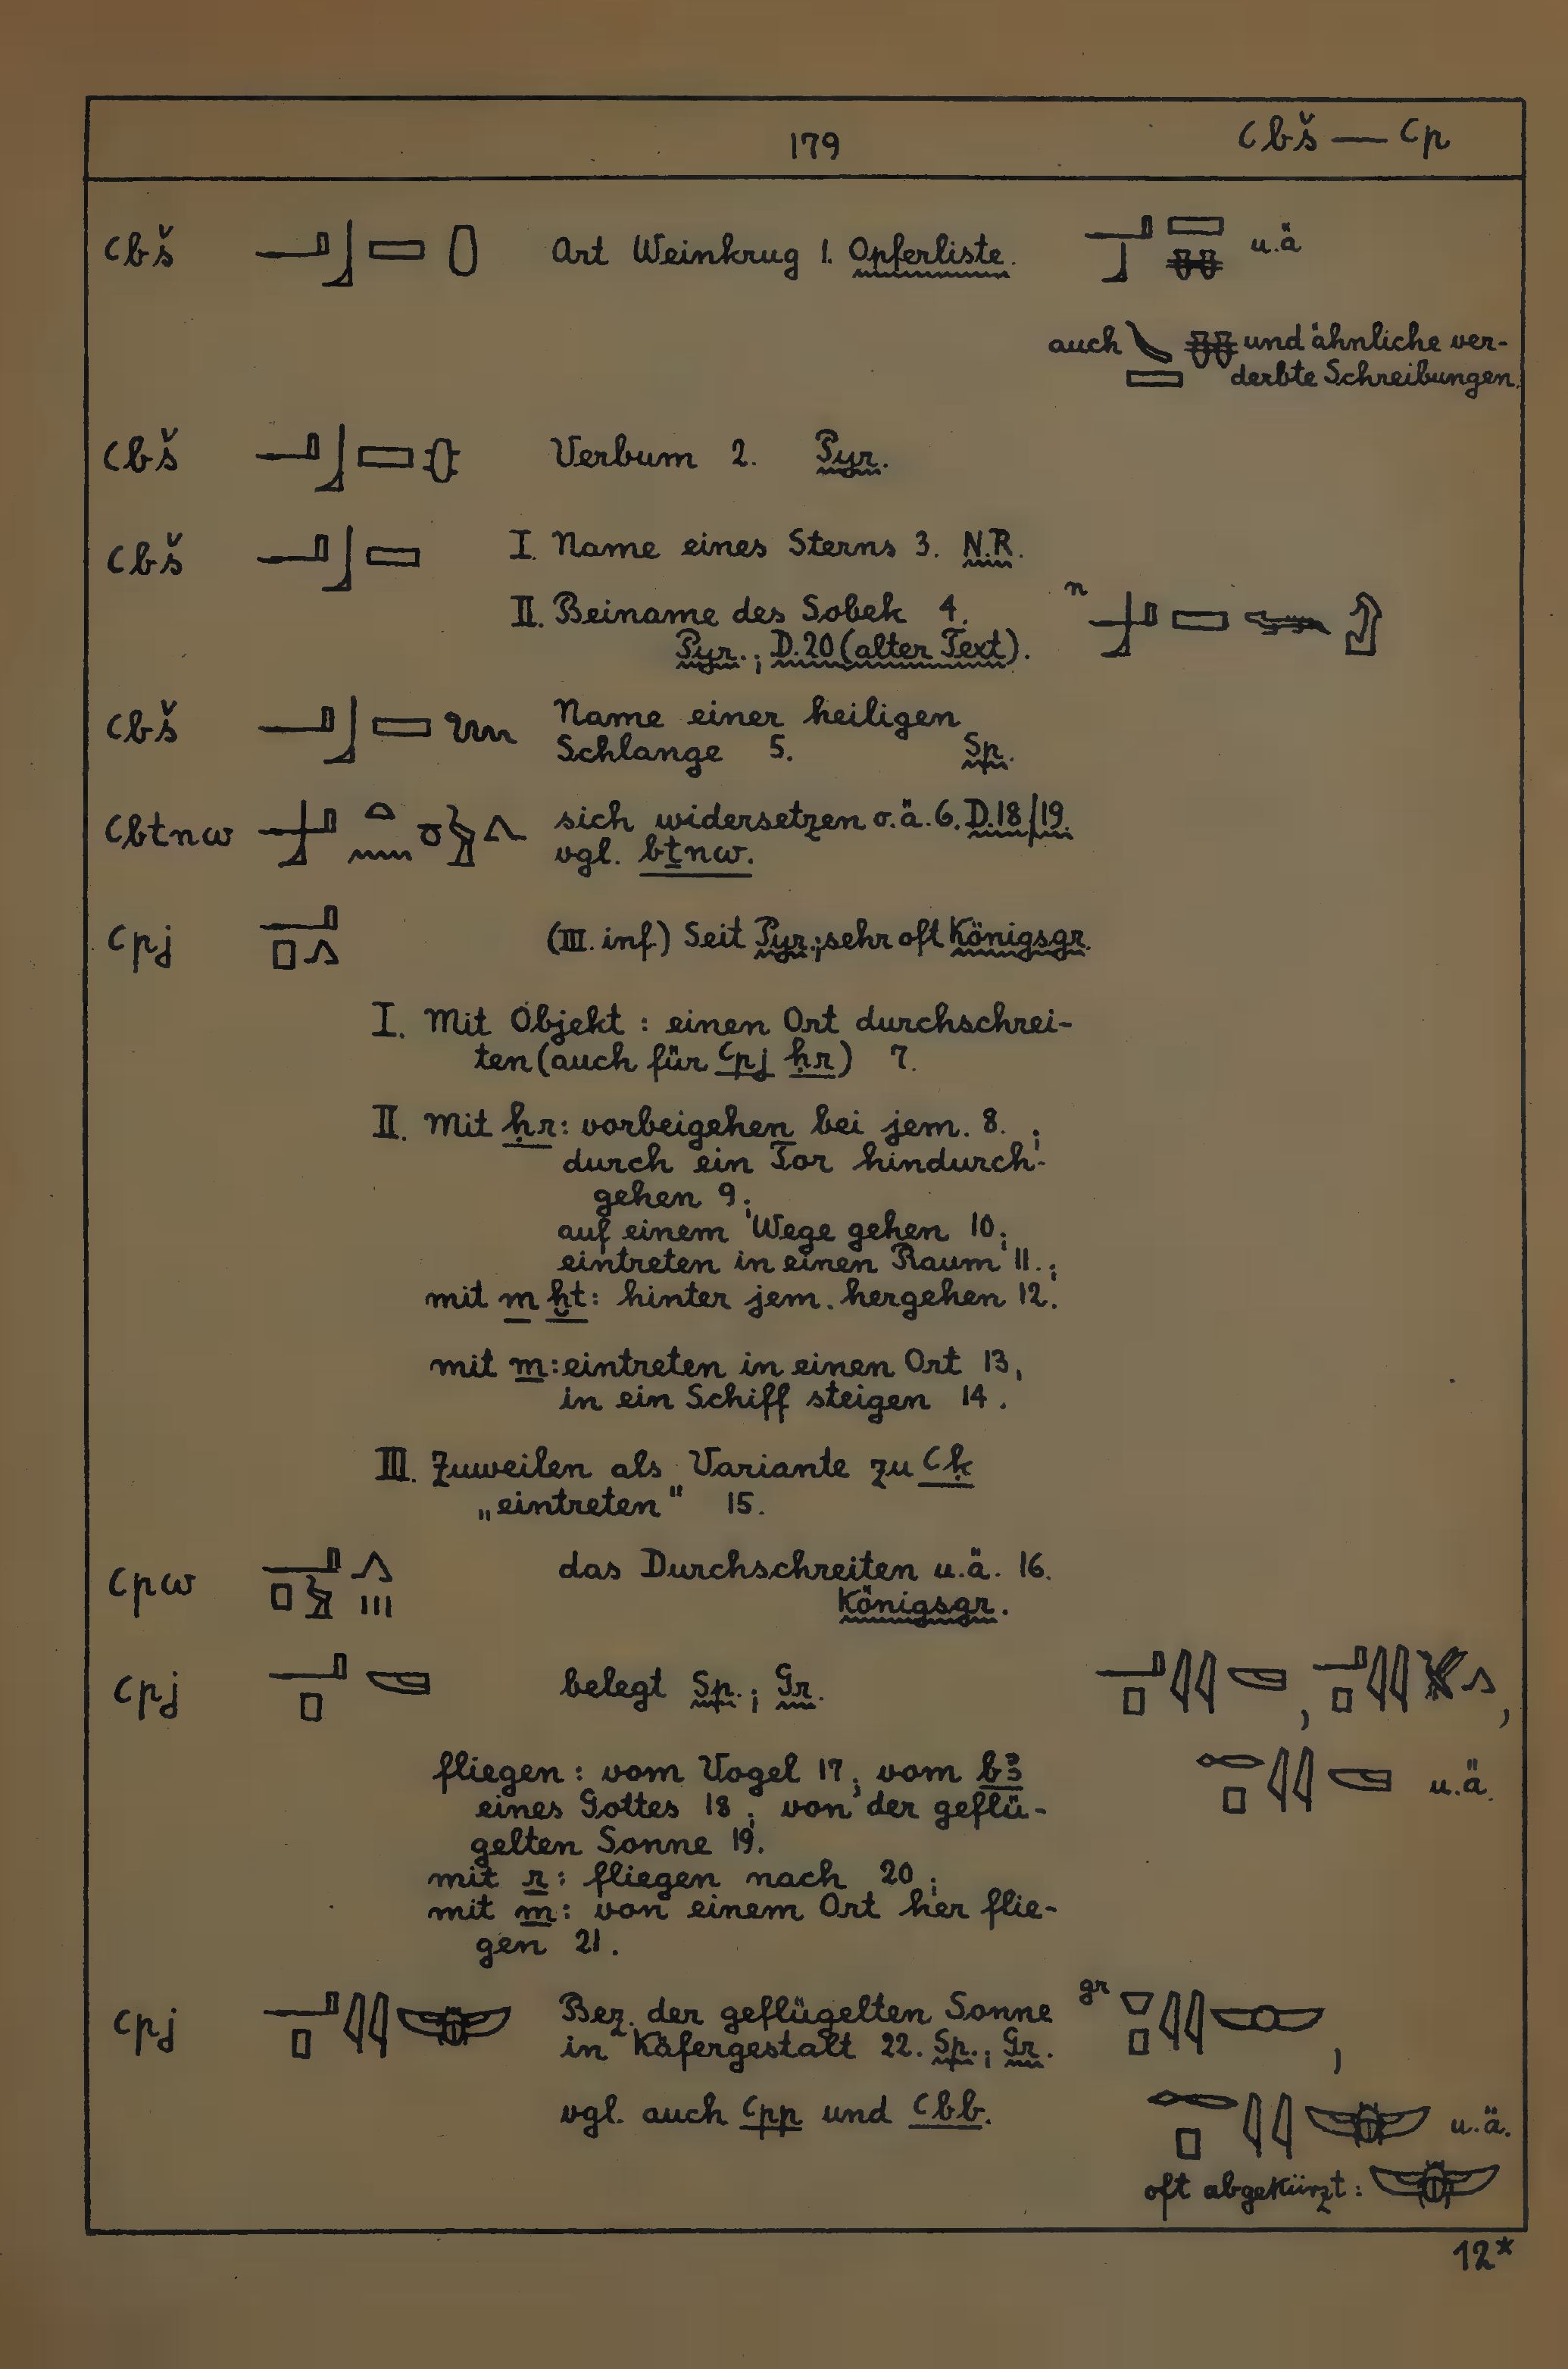 179 ꜥbš — ꜥp
ꜥbš Art Weinkrug 1. Opferliste. u.ä
auch und ähnliche ver-
derbte Schreibungen.
ꜥbš Verbum 2. Pyr.
ꜥbš I. Name eines Sterns 3. N.R.
II. Beiname des Sobek 4. n
Pyr.; D.20 (alter Text).
ꜥbš Name einer heiligen
Schlange 5. Sp.
ꜥbtnw sich widersetzen o.ä. 6. D.18/19.
vgl. bṯnw.
ꜥpj (III. inf.) Seit Pyr.; sehr oft Königsgr.
I. Mit Objekt: einen Ort durchschrei-
ten (auch für ꜥpj ḥr) 7.
II. Mit ḥr: vorbeigehen bei jem. 8. ;
durch ein Tor hindurch-
gehen 9;
auf einem Wege gehen 10;
eintreten in einen Raum 11.;
mit m ḫt: hinter jem. hergehen 12.
mit m: eintreten in einen Ort 13,
in ein Schiff steigen 14.
III. Zuweilen als Variante zu ꜥḳ
„eintreten" 15.
ꜥpw das Durchschreiten u.ä. 16.
Königsgr.
ꜥpj belegt Sp.; Gr. , ,
fliegen: vom Vogel 17; vom bꜣ u.ä.
eines Gottes 18; von der geflü-
gelten Sonne 19.
mit r: fliegen nach 20;
mit m: von einem Ort her flie-
gen 21.
ꜥpj Bez. der geflügelten Sonne gr ,
in Käfergestalt 22. Sp.; Gr.
vgl. auch ꜥpp und ꜥbb. u.ä.
oft abgekürzt:
12*